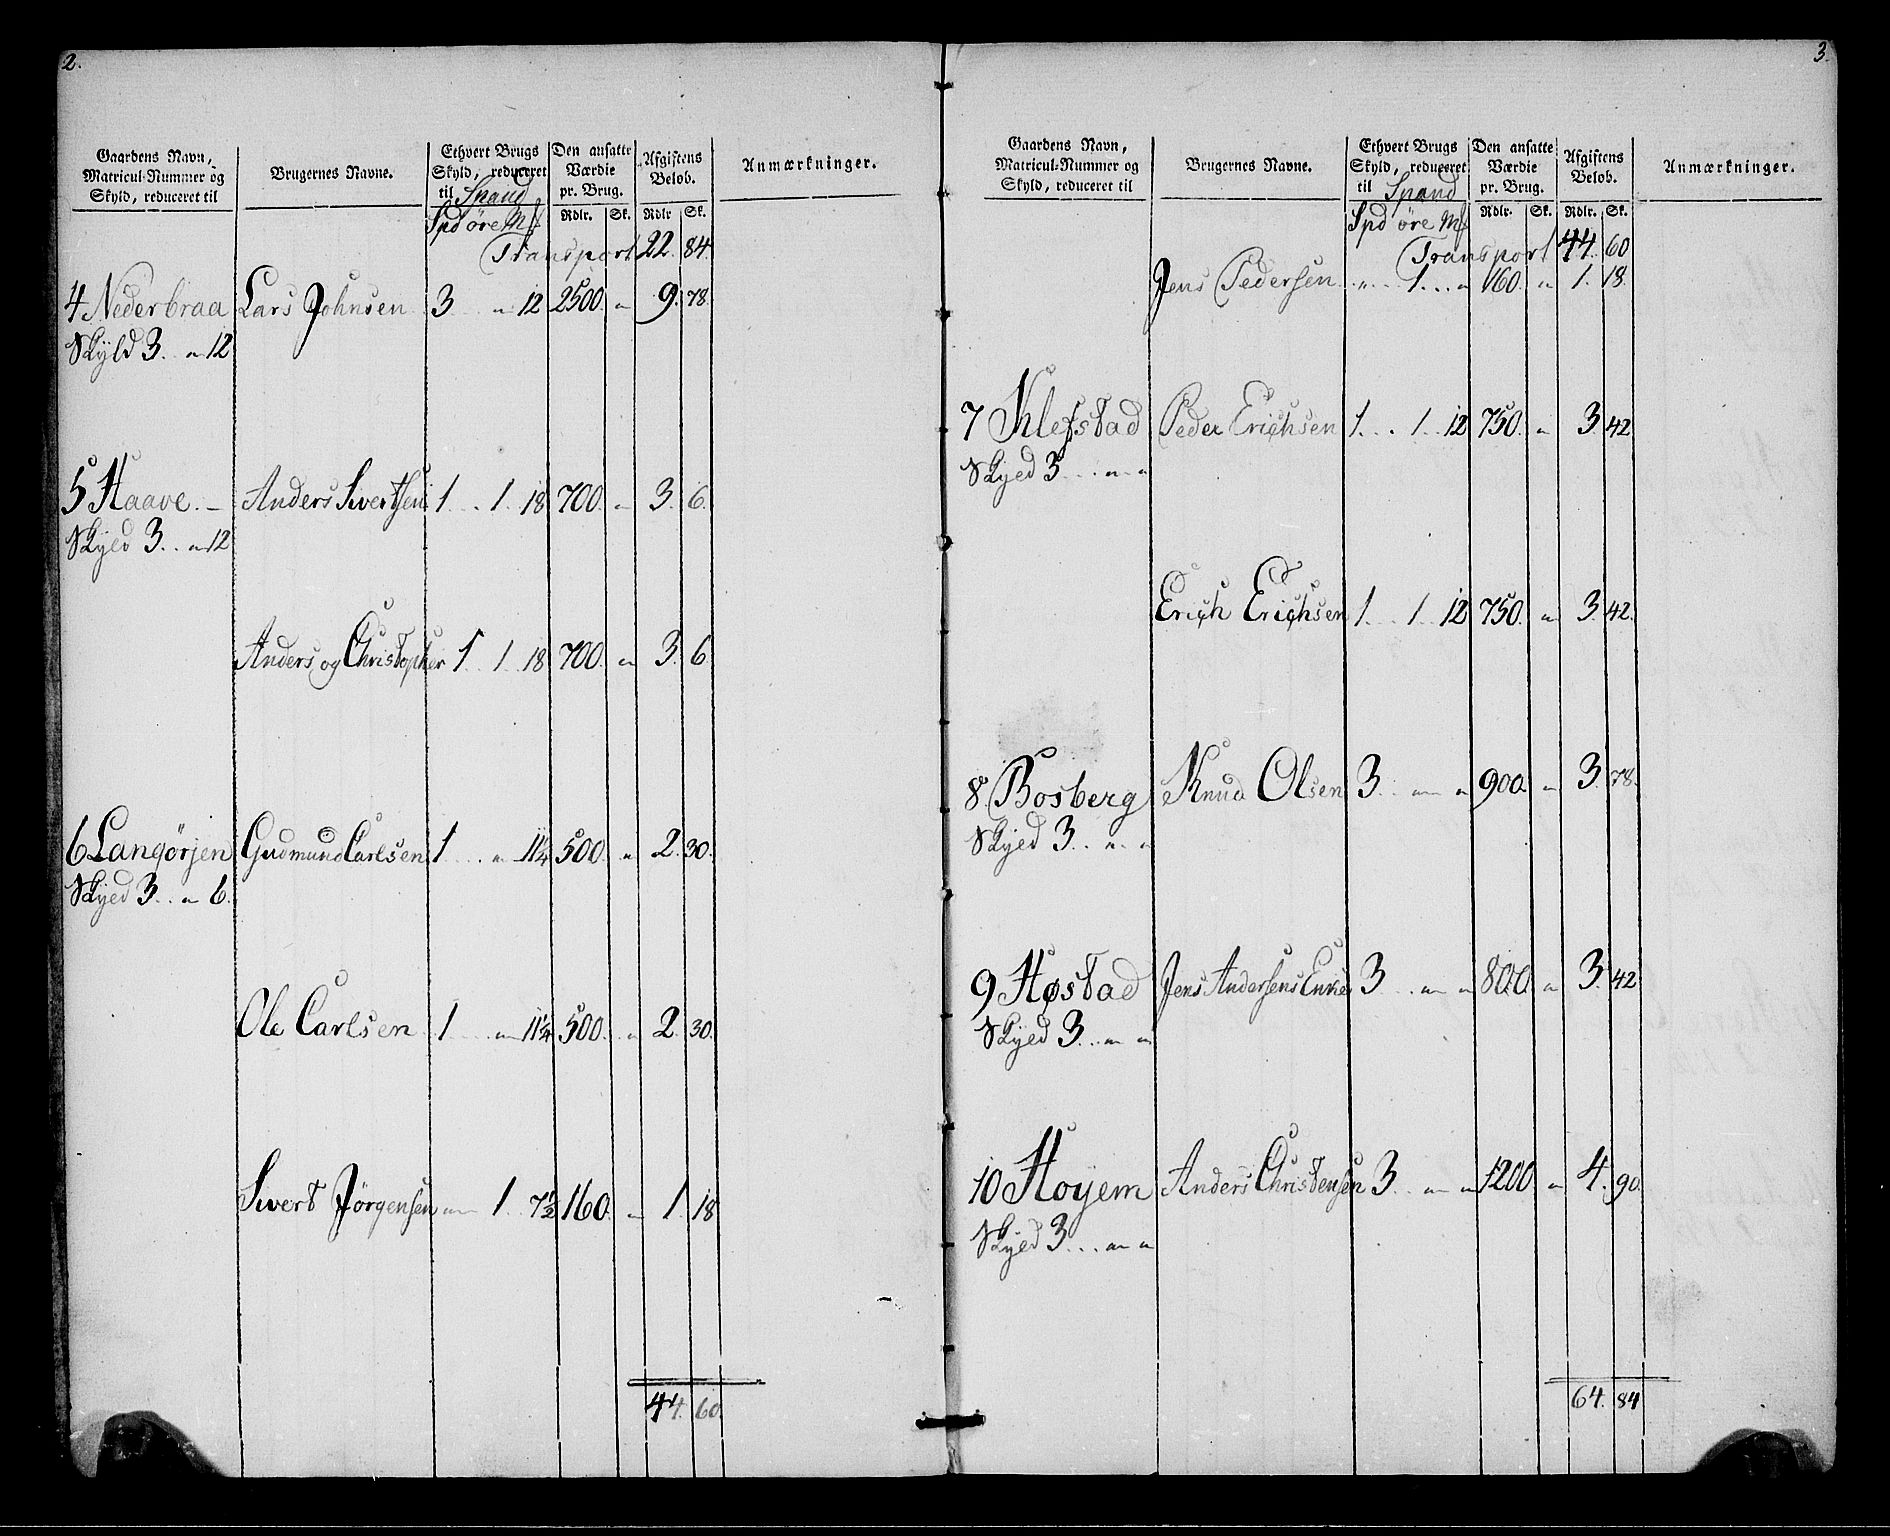 2.
Gaardens Navn, Matricul-Nummer og Skyld, reduceret til | Brugernes Navne. | Ethvert Brugs Skyld, reduceret til Spand | Den ansatte Værdie pr. Brug. | Afgiftens Beløb. | Anmærkninger.
Spd öre Mf | Rdlr. | Sk. | Rdlr | Sk.
Transport 22. 84.
4 Nederbraa Lars Johnsen 3 .. " 12 2500. " 9. 78.
Skyld 3. . " 12
5 Haave. – Anders Sivertsen 1 . . 1 . . 18 700. " 3. 6.
Skyed 3. . " 12
Anders og Christopher 1 . . 1 . . 18 700. " 3. 6
6 Langörjen Gudmund Carlsen 1 . . " 11¼ 500. " 2. 30.
Skyed 3. . " 6.
Ole Carlsen 1 . . " 11¼ 500. " 2. 30.
Sivert Jörgensen " 1 . . 7½ 160. " 1. 18
44. 60.
3.
Gaardens Navn, Matricul-Nummer og Skyld, reduceret til | Brugernes Navne. | Ethvert Brugs Skyld, reduceret til Spand | Den ansatte Værdie pr. Brug. | Afgiftens Beløb. | Anmærkninger.
Spd öre Mf | Rdlr. | Sk. | Rdlr. | Sk.
Transport 44. 60
Jens Pedersen " . . 1 . . " 160. " 1. 18.
7 Klefstad Peder Erichsen 1 . . 1 . . 12 750. " 3. 42
Skyed 3 . . " "
Erich Erichsen 1 . . 1 . . 12 750. " 3. 42.
8. Bosberg Knud Olsen 3 . . " " 900. " 3. 78.
Skyed 3. . " "
9 Høstad Jens Andersens Enke 3 . . " " 800. " 3. 42
Skyed 3. . " "
10 Hoyem Anders Christensen 3 . . " " 1200 " 4. 90.
Skyed 3 . . " "
64. 84